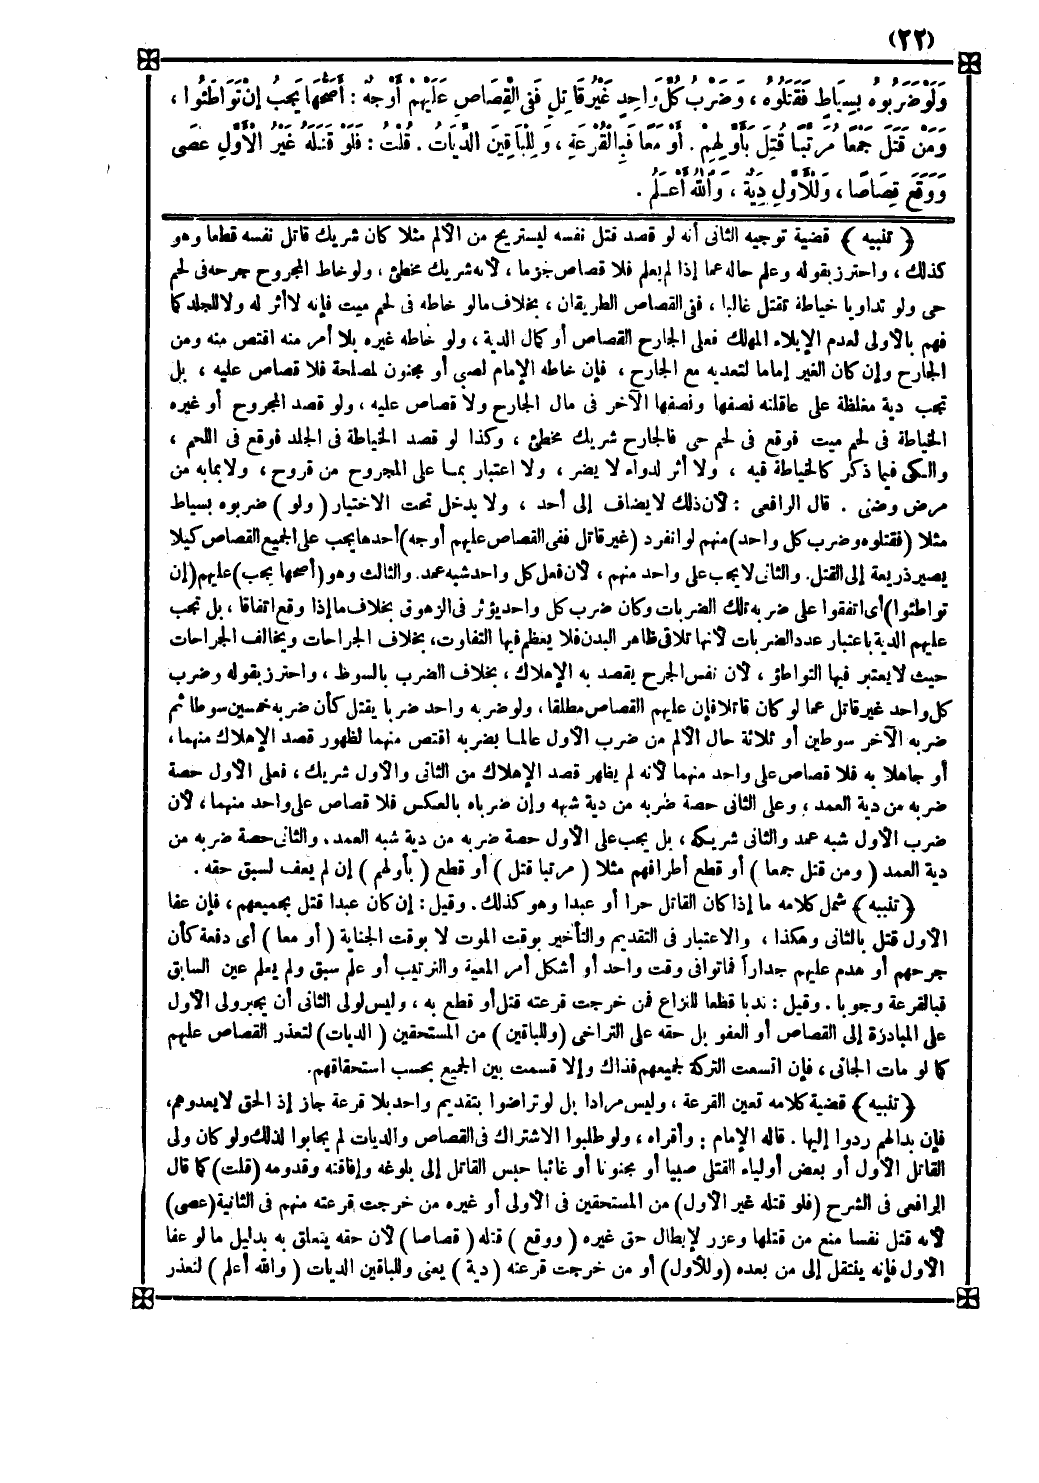 (٢٢)
وَلَوْ ضَرَبُوهُ بِسِيَاطٍ فَقَتَلُوهُ ، وَضَرْبُ كُلِّ وَاحِدٍ غَيْرُ قَاتِلٍ فَفِى الْقِصَاصِ عَلَيْهِمْ أَوْجُهٌ : أَصَحُّهَا يَجِبُ إِنْ تَوَاطَئُوا ،
وَمَنْ قَتَلَ جَمْعًا مُرَتَّبًا قُتِلَ بِأَوَّلِهِمْ . أَوْ مَعًا فَبِالْقُرْعَةِ ، وَلِلْبَاقِينَ الدِّيَاتُ . قُلْتُ : فَلَوْ قَتَلَهُ غَيْرُ الْأَوَّلِ عَصَى
وَوَقَعَ قِصَاصًا ، وَلِلْأَوَّلِ دِيَةٌ ، وَاللهُ أَعْـلَمُ .
﴿ تنبيه ﴾ قضية توجيه الثانى أنه لو قصد قتل نفسه ليستريح من الألم مثلا كان شريك قاتل نفسه قطعا وهو
كذلك ، واحترز بقوله وعلم حاله عما إذا لم يعلم فلا قصاص جزما ، لأنه شريك مخطئ ، ولو خاط المجروح جرحه فى لحم
حى ولو تداويا خياطة تقتل غالبا ، ففى القصاص الطريقان ، بخلاف مالو خاطه فى لحم ميت فإنه لا أثر له ولا للجلد كما
فهم بالأولى لعدم الإيلاء المهلك فعلى الجارح القصاص أو كمال الدية ، ولو خاطه غيره بلا أمر منه اقتص منه ومن
الجارح وإن كان الغير إماما لتعديه مع الجارح ، فإن خاطه الإمام لصبى أو مجنون لمصلحة فلا قصاص عليه ، بل
تجب دية مغلظة على عاقلته نصفها ونصفها الآخر فى مال الجارح ولا قصاص عليه ، ولو قصد المجروح أو غيره
الخياطة فى لحم ميت فوقع فى لحم حى فالجارح شريك مخطئ ، وكذا لو قصد الخياطة فى الجلد فوقع فى اللحم ،
والكى فيما ذكر كالخياطة فيه ، ولا أثر لدواء لا يضر ، ولا اعتبار بمـا على المجروح من قروح ، ولا بمابه من
مرض وضنى . قال الرافعى : لأن ذلك لا يضاف إلى أحد ، ولا يدخل تحت الاختيار ( ولو ) ضربوه بسياط
مثلا (فقتلوه وضرب كل واحد) منهم لو انفرد (غير قاتل ففى القصاص عليهم أوجه) أحدها يجب على الجميع القصاص كيلا
يصير ذريعة إلى القتل. والثانى لا يجب على واحد منهم ، لأن فعل كل واحد شبه عمد. والثالث وهو (أصحها يجب) عليهم (إن
تواطئوا) أى اتفقوا على ضربه تلك الضربات وكان ضرب كل واحد يؤثر فى الزهوق بخلاف ما إذا وقع اتفاقا ، بل تجب
عليهم الدية باعتبار عدد الضربات لأنها تلاقى ظاهر البدن فلا يعظم فيها التفاوت، بخلاف الجراحات ويخالف الجراحات
حيث لا يعتبر فيها التواطؤ ، لأن نفس الجرح يقصد به الإهلاك ، بخلاف الضرب بالسوط ، واحترز بقوله وضرب
كل واحد غير قاتل عما لو كان قاتلا فإن عليهم القصاص مطلقا ، ولو ضربه واحد ضربا يقتل كأن ضربه خمسين سوطا ثم
ضربه الآخر سوطين أو ثلاثة حال الألم من ضرب الأول عالمـا بضربه اقتص منهما لظهور قصد الإهلاك منهما،
أو جاهلا به فلا قصاص على واحد منهما لأنه لم يظهر قصد الإهلاك من الثانى والأول شريك ، فعلى الأول حصة
ضربه من دية العمد ، وعلى الثانى حصة ضربه من دية شبهه وإن ضرباه بالعكس فلا قصاص على واحد منهما، لأن
ضرب الأول شبه عمد والثانى شريكه ، بل يجب على الأول حصة ضربه من دية شبه العمد. والثانى حصة ضربه من
دية العمد ( ومن قتل جمعا ) أو قطع أطرافهم مثلا ( مرتبا قتل ) أو قطع ( بأولهم ) إن لم يعف لسبق حقه .
﴿ تنبيه ﴾ شمل كلامه ما إذا كان القاتل حرا أو عبدا وهو كذلك . وقيل : إن كان عبدا قتل بجميعهم ، فإن عفا
الأول قتل بالثانى وهكذا ، والاعتبار فى التقديم والتأخير بوقت الموت لا بوقت الجناية ( أو معا ) أى دفعة كأن
جرحهم أو هدم عليهم جداراً فماتوا فى وقت واحد أو أشكل أمر المعية والترتيب أو علم سبق ولم يعلم عين السابق
فبالقرعة وجوبا . وقيل : ندبا قطعا للنزاع فمن خرجت قرعته قتل أو قطع به ، وليس لولى الثانى أن يجبر ولى الأول
على المبادرة إلى القصاص أو العفو بل حقه على التراخى (وللباقين ) من المستحقين ( الديات) لتعذر القصاص عليهم
كما لو مات الجانى ، فإن اتسعت التركة لجميعهم فذاك وإلا قسمت بين الجميع بحسب استحقاقهم.
﴿ تنبيه ﴾ قضية كلامه تعين القرعة ، وليس مرادا بل لو تراضوا بتقديم واحد بلا قرعة جاز إذ الحق لا يعدوهم،
فإن بدا لهم ردوا إليها . قاله الإمام : وأقراه ، ولو طلبوا الاشتراك فى القصاص والديات لم يجابوا لذلك ولو كان ولى
القاتل الأول أو بعض أولياء القتلى صبيا أو مجنونا أو غائبا حبس القاتل إلى بلوغه وإفاقته وقدومه (قلت) كما قال
الرافعى فى الشرح (فلو قتله غير الأول) من المستحقين فى الأولى أو غيره من خرجت قرعته منهم فى الثانية (عصى)
لأنه قتل نفسا منع من قتلها وعزر لإبطال حق غيره ( ووقع ) قتله ( قصاصا ) لأن حقه يتعلق به بدليل ما لو عفا
الأول فإنه ينتقل إلى من بعده (وللأول) أو من خرجت قرعته ( دية ) يعنى وللباقين الديات ( والله أعلم ) لتعذر